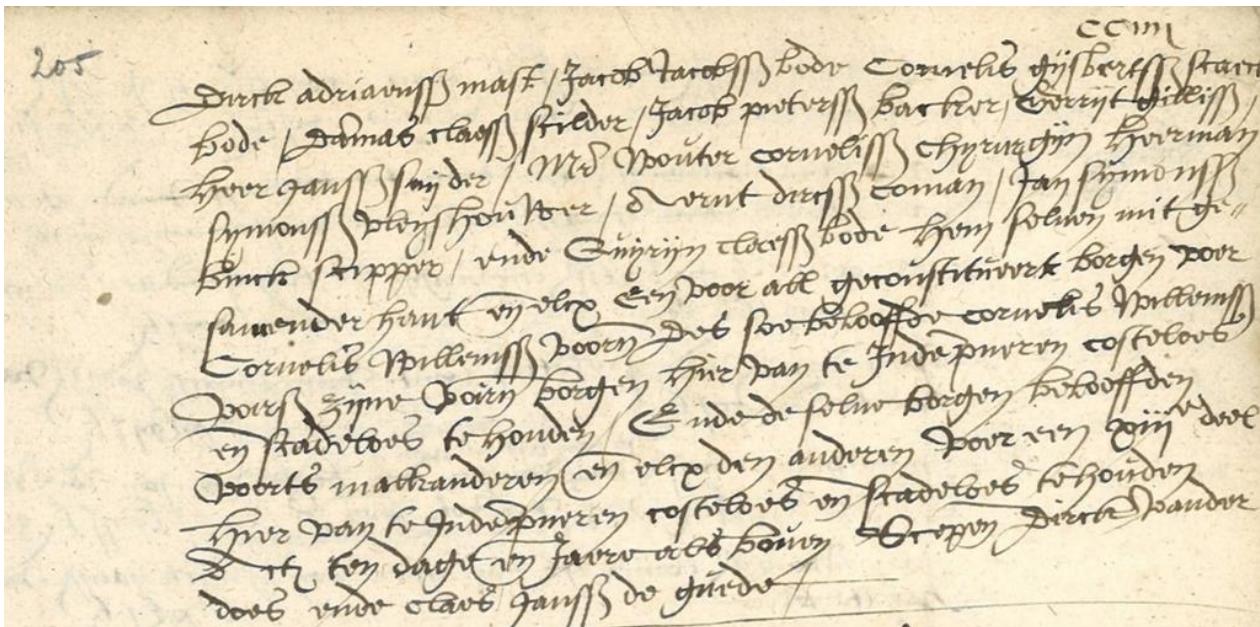 CCIIII
205
Dirck adriaenssz mast / Jacob Jacobssz bode Cornelis gijsbertssz
bode / Damas claessz scilder / Jacob pieterssz backer / Gerrijt gillissz /
heer Janssz snijder / Mr Wouter cornelissz Chyrurgijn heerman
symonssz vleyshouwer / Aernt dircssz Coman / Jan symonssz
buick scipper / ende Quyrijn claessz bode hem seluen mit ge=
samender hant en elcx een voor all geconstitueert borgen voer
Cornelis Willemssz voorn Des soe beloofde cornelis Willemssz
voirs zijne voirn borgen hier van te Indempneren costeloes
en scadeloes te houden / Ende de selue borgen beloofden
voorts malkanderen en elcx den anderen voer een xiiie deel
hier van te Indempneren costeloes en scadeloes te houden
Actz ten dage en Jaere als boven Scepen Dirck vander
does ende claes Janssz de guede